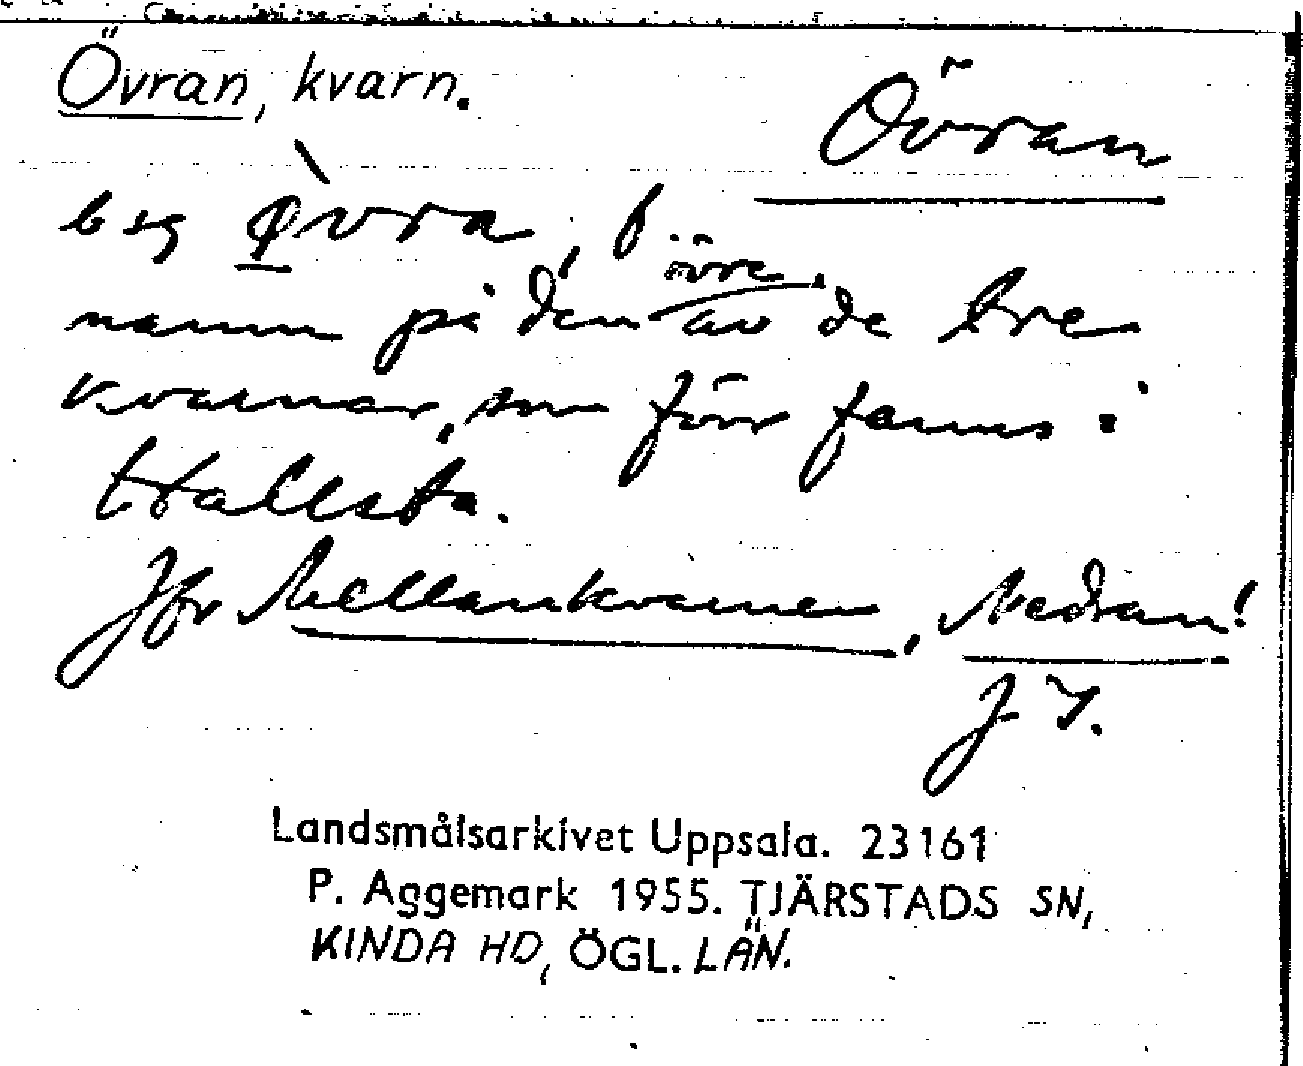 Övran, kvarn.
Övran
b sg Øvra, f
namn på den övre av de tre
kvarnar, som förr fanns i
Hallsta.
Jfr Mellankvarnen, Nedran!
Landsmålsarkivet Uppsala. 23161
P. Aggemark 1955. TJÄRSTADS SN,
KINDA HD, ÖGL. LÄN.